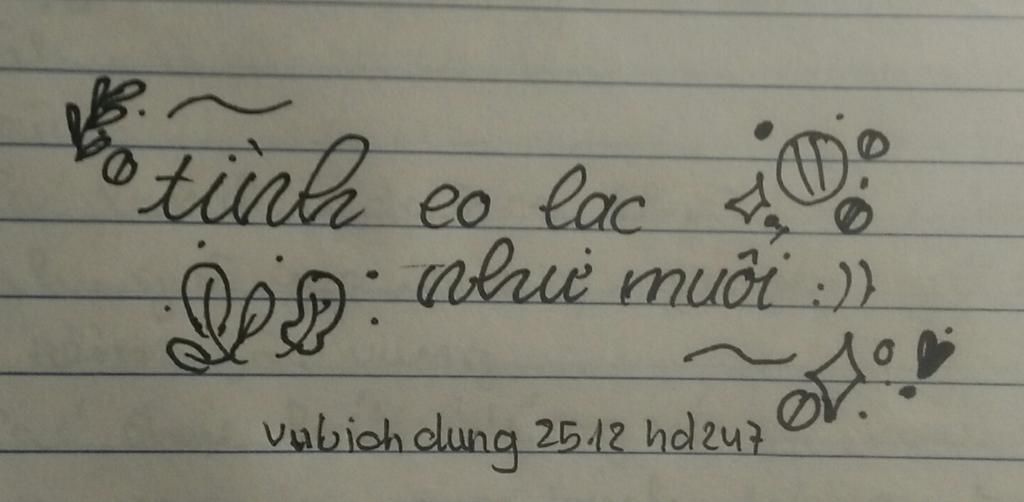 tình eo lac
như muối :))
vubichdung 25.12 hd247